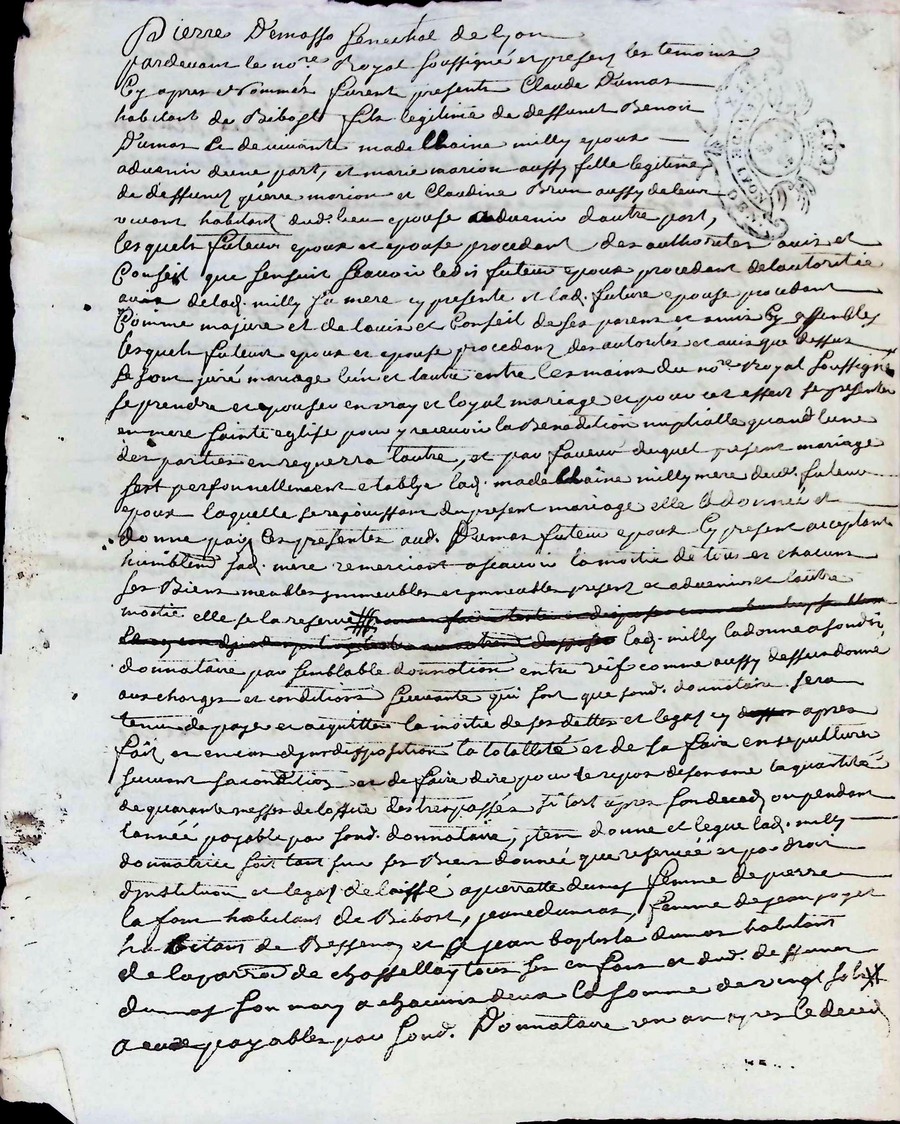 Pierre Demasso Senechal de Lyon
pardevant le no.re Royal soussigné et presens les temoins
Cy apres et nommés furent presents Claude Dumas
habitant de Bibost fils legitime de deffunct Benoit
Dumas et de vivante madellaine milly epoux
advenir d'une part, et marie marion aussy fille legitime
de deffunct pierre marion et Claudine Brun aussy de leur
vivant habitant dud. lieu epouse advenir d'autre part,
lesquels futeur epoux et epouse procedant des authorites avis et
Conseil que sensuit scavoir ledit futeur epoux procedant de lautoritté
avis de lad. milly sa mere cy presente et lad. future epouse procedant
Comme majure et de lavis et Conseil de ses parens et amis Cy assembles
lesquels futeur epoux et epouse procedant des autorités et avis que dessus
se sont juré mariage lun et lautre entre les mains du no.re Royal soussigné
se prendre et epouser en vray et loyal mariage et pour cet effect se presenter
en mere sainte eglise pour y recevoir la Benediction nuptialle quand lune
des parties en requerra lautre, et par faveur duquel present mariage
sest personnellement etablye lad. madellaine milly mere dud. futeur
epoux laquelle se rejouissant du present mariage elle a donnée et
donne par Ces presentes aud. Dumas futeur epoux Cy present acceptant
humblem.t sad. mere remerciant a scavoir la moitie de tous et chacuns
ses Biens meubles immeubles present et advenir et lautre
moitie elle se la reserve
lad. milly la donne a sondit
donnataire par semblable donnation entre vif comme aussy dessus donné
aux charges et conditions suivante qui sont que sond. donnataire sera
tenu de payer et acquitter la moitie de ses dettes et legas cy apres
fait et en cas de disposition la totallité et de la faire ensepulturer
suivant sa condition et de faire dire pour le repos de son ame la quantité
de quarante messes de loffice des trespassés si tost apres son deced ou pendant
lannée payable par sond. donnataire, item donne et legue lad. milly
donnatrice soit tant sur ses Biens donnée que reservée et par droit
dinstitution et legas delaissé a pierrette dumas femme de pierre
la font habitant de Bibost, jeane dumas, femme de jean
habitans de Bessenay et a jean baptiste dumas habitant
de la parroi de chasselay tous ses enfans et dud. deffunct
dumas son mary a chacuns deux la somme de vingt sols
a eux payables par sond. Donnataire un an apres le deced